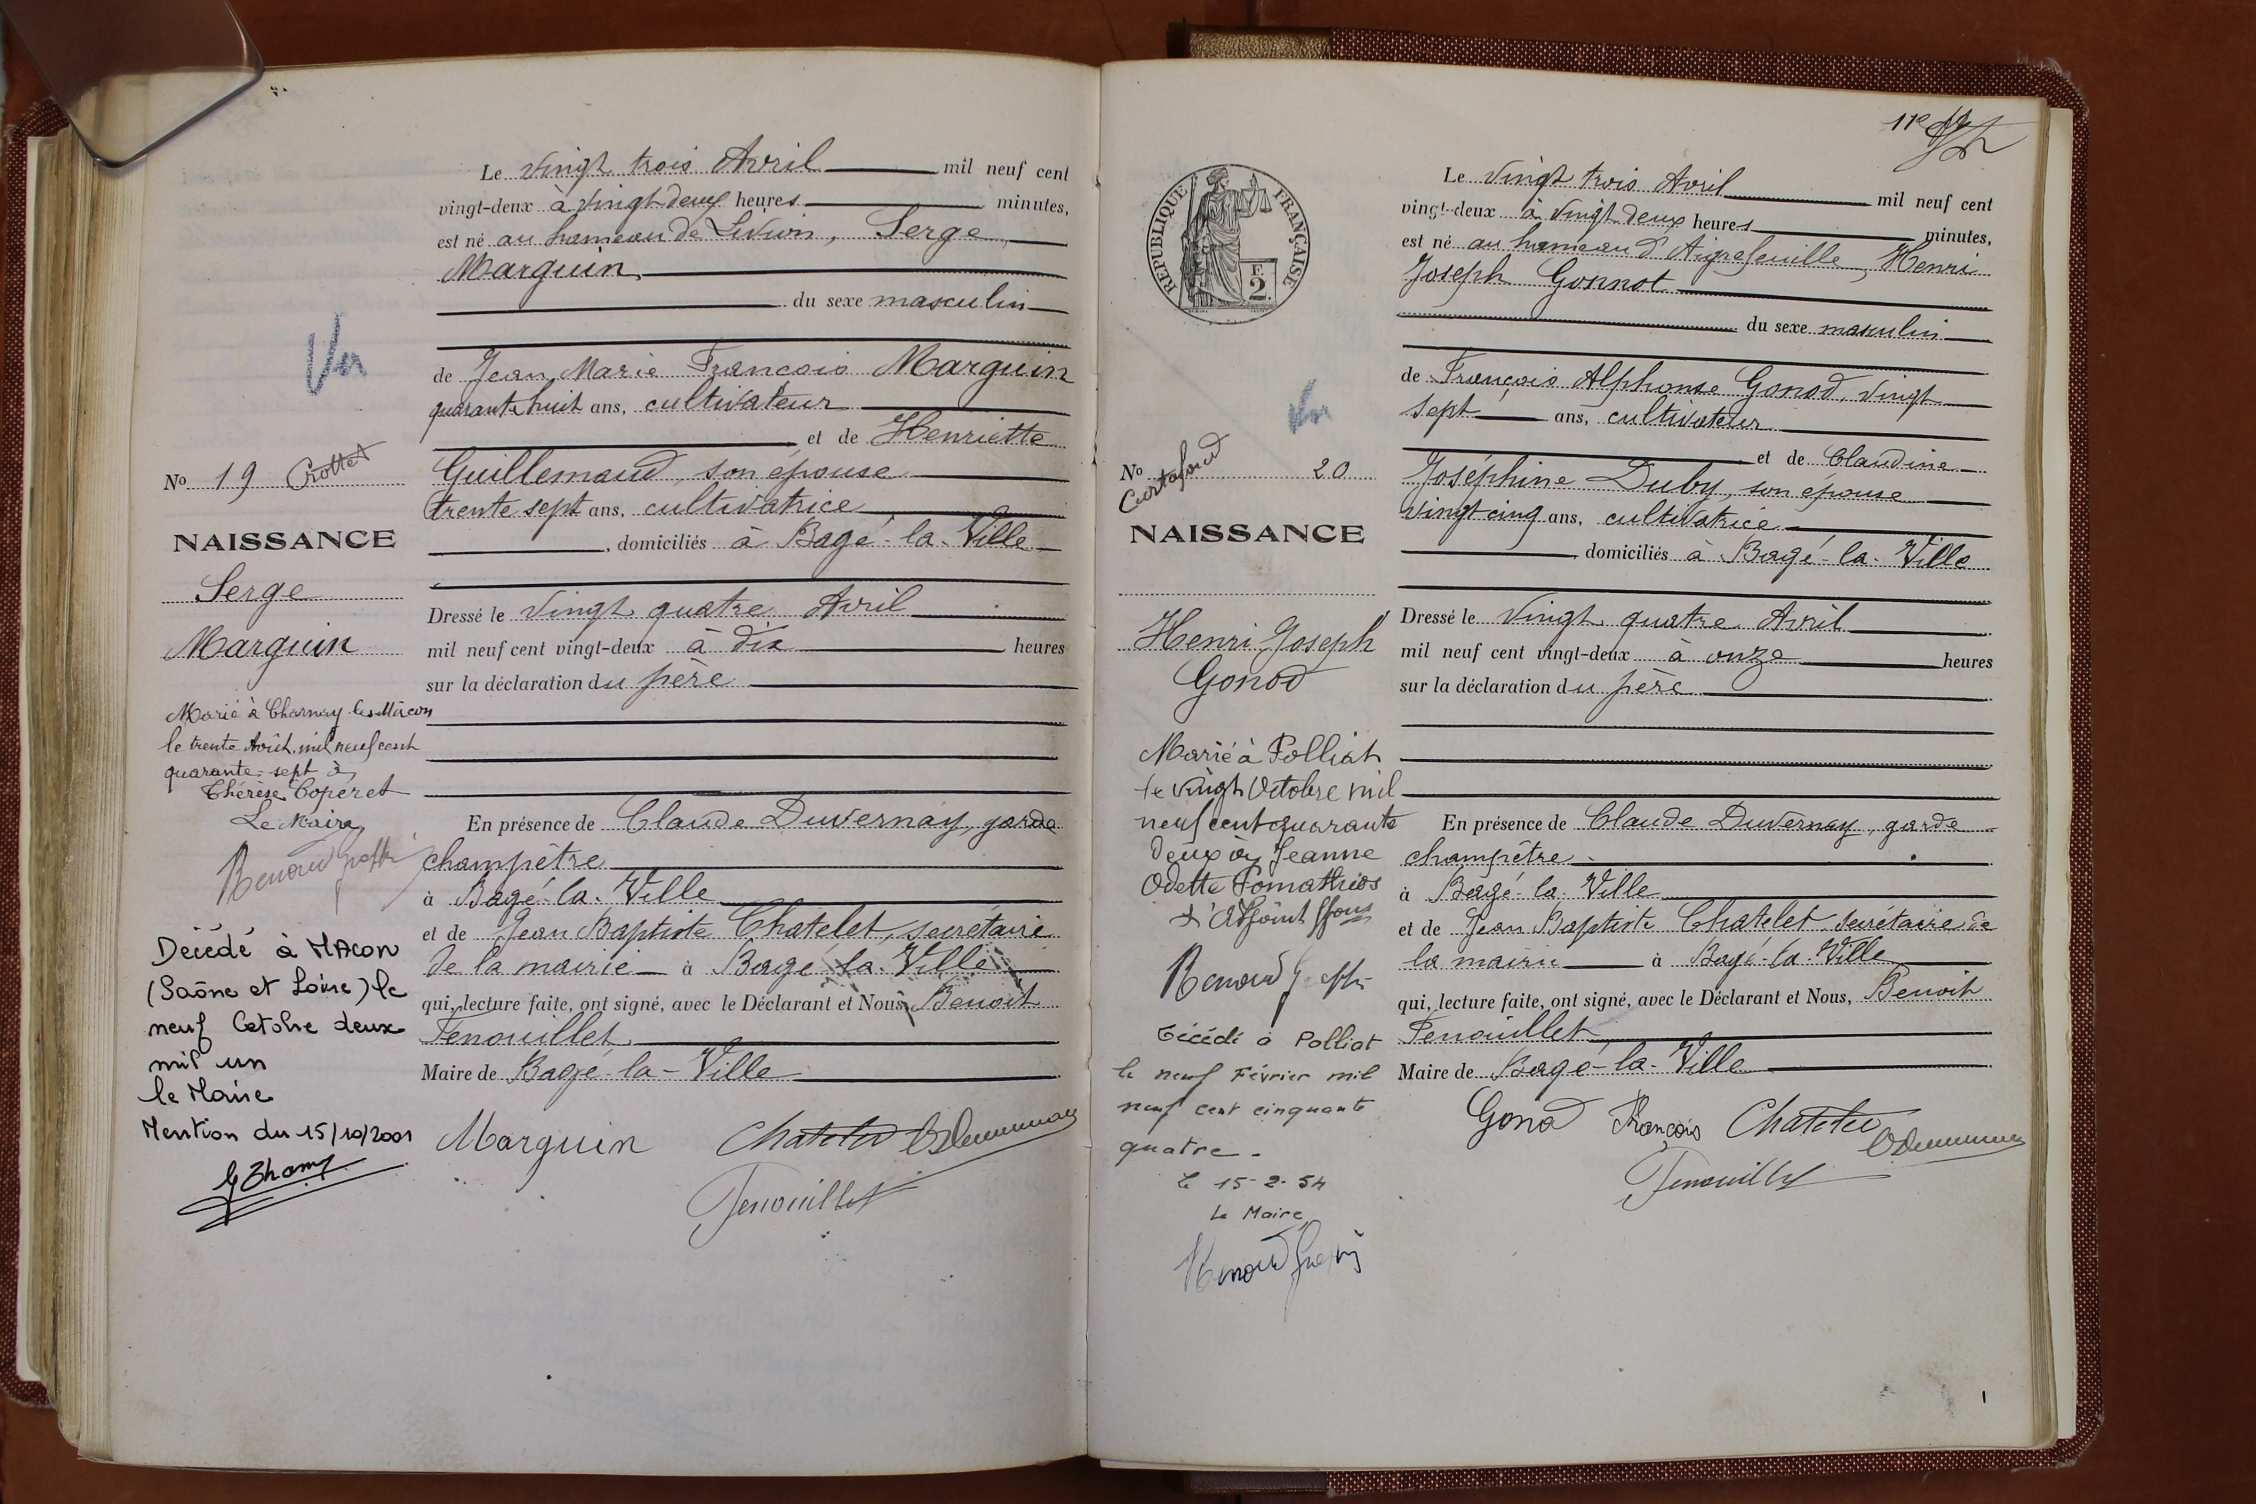 Le vingt trois Avril mil neuf cent
vingt-deux à vingt deux heures minutes,
est né au hameau de Livion, Serge
Marguin,
du sexe masculin
de Jean Marie François Marguin
quarante huit ans, cultivateur
et de Henriette
Guillemaud, son épouse
trente sept ans, cultivatrice
, domiciliés à Bagé-la-Ville
Dressé le vingt quatre Avril
mil neuf cent vingt-deux à dix heures
sur la déclaration du père
En présence de Claude Duvernay, garde
champêtre
à Bagé-la-Ville
et de Jean Baptiste Chatelet, secrétaire
de la mairie à Bagé-la-Ville
qui, lecture faite, ont signé, avec le Déclarant et Nous, Benoit
Fenouillet
Maire de Bagé-la-Ville
Marguin Chatelet
Fenouillet
Vu
No 19 Crottet
NAISSANCE
Serge
Marguin
Marié à Charnay-les-Mâcon
le trente Août mil neuf cent
quarante-sept à
Thérèse Copéret
Le Maire
Décédé à MAcon
(Saône et Loire) le
neuf Octobre deux
mil un
le Maire
Mention du 15/10/2001
11e
RÉPUBLIQUE FRANÇAISE
F.
2.
Vu
No 20
Curtafond
NAISSANCE
Henri Joseph
Gonod
Marié à Polliat
le vingt Octobre mil
neuf cent quarante
deux à Jeanne
Odette Pomathios
Décédé à Polliat
le neuf Février mil
neuf cent cinquante
quatre.
le 15-2-54
Le Maire
Le vingt trois Avril mil neuf cent
vingt-deux à vingt deux heures minutes,
est né au hameau d'Aigrefeuille, Henri
Joseph Gonnot
du sexe masculin
de François Alphonse Gonod, vingt
sept ans, cultivateur
et de Claudine
Joséphine Duby, son épouse
vingt cinq ans, cultivatrice
, domiciliés à Bagé-la-Ville
Dressé le vingt quatre Avril
mil neuf cent vingt-deux à onze heures
sur la déclaration du père
En présence de Claude Duvernay, garde
champêtre
à Bagé-la-Ville
et de Jean Baptiste Chatelet secrétaire de
la mairie à Bagé-la-Ville
qui, lecture faite, ont signé, avec le Déclarant et Nous, Benoit
Fenouillet
Maire de Bagé-la-Ville
Gonod François Chatelet
Fenouillet